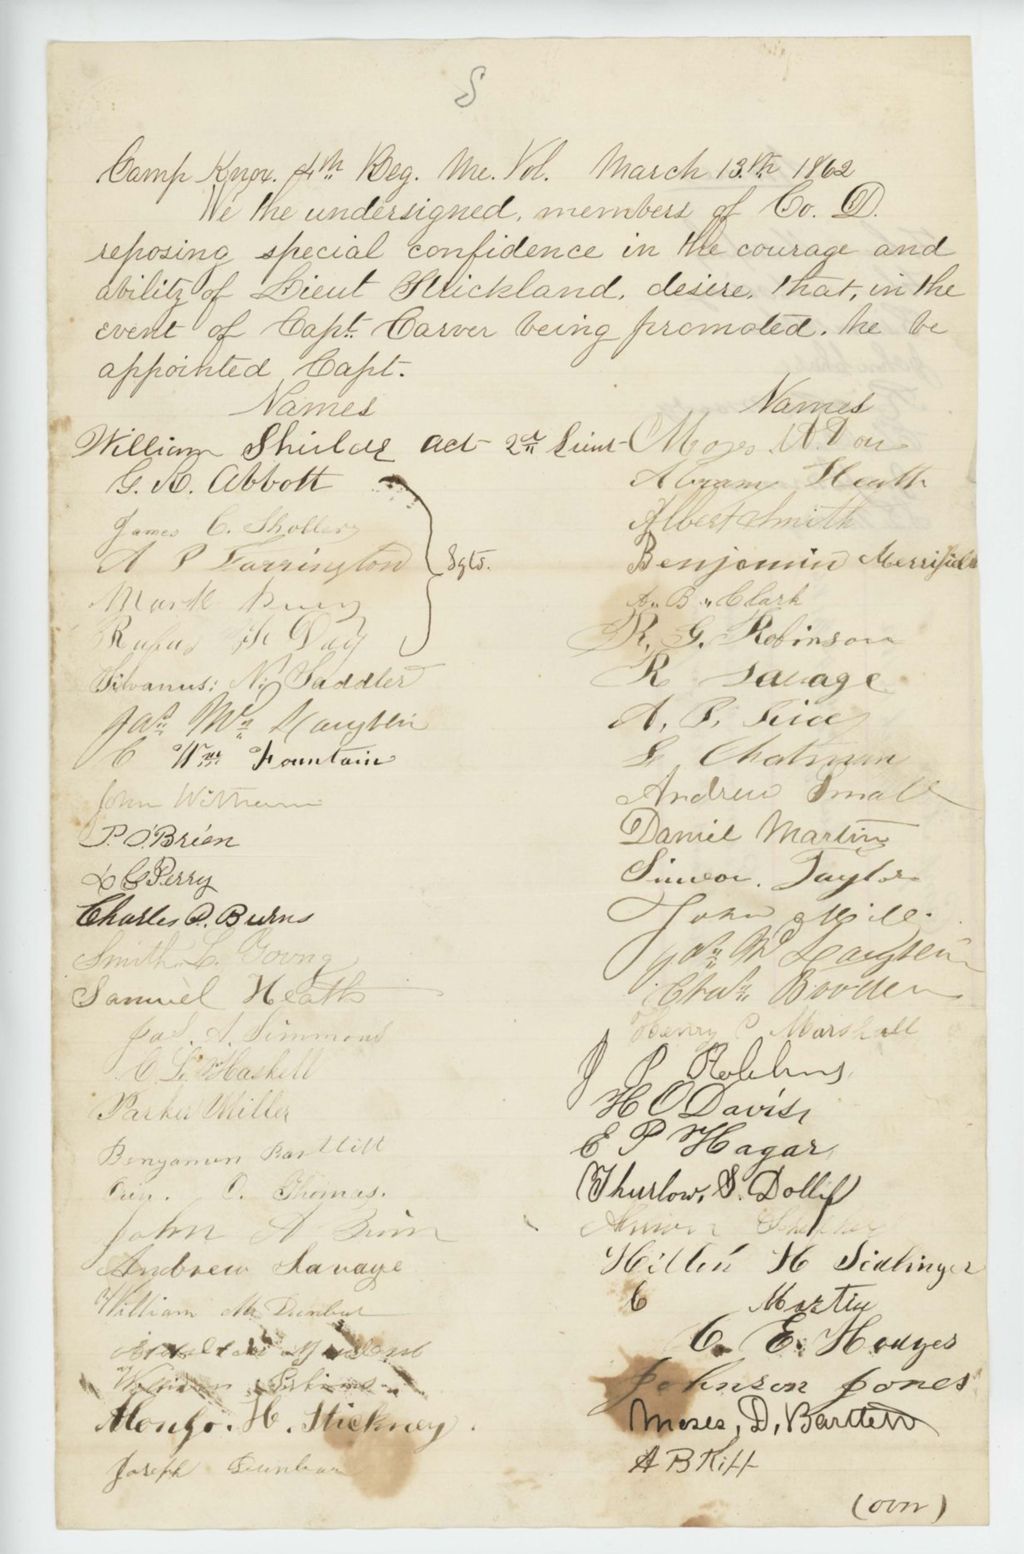 S
Camp Knox. 4th Reg. Me. Vol. March 13.th 1862
We the undersigned, members of Co. D.
reposing special confidence in the courage and
ability of Lieut Strickland, desire, that, in the
event of Capt. Carver being promoted, he be
appointed Capt.
Names
William Shields act 2nd Lieut
G. A. Abbott
James C. Shollery
A P Farrington
Mark
Rufus Day
Sgts.
Silvanus: N. Saddler
Jas Mc Laughlin
C Wm Fountain
John Witham
P. O'Brien
L G Perry
Charles O. Burns
Smith L. Young
Samuel Heath
Jas. A. Simmons
C L. Haskell
Parker Miller
Benjamin Bartlitt
O. Thomas.
John A
Andrew Savage
William Mc Dunbar
William Perkins
Alonzo. H. Stickney.
Joseph Dunbar
Names
Moses W.
Abram Heath
Albert Smith
Benjamin Merrifield
A. B. Clark
R. G. Robinson
R Savage
A. P.
Chatman
Andrew Small
Daniel Martin
Simeon. Taylor
John
Jas Mc Laughlin
Chas Booden
Henry C Marshall
J P Robbins
H O Davis
E P Hagar
Thurlow, S. Dolliff
H Sidlinger
C Martin
C. E. Hodges
Johnson Jones
Moses, D, Bartlett
A B Kiff
(over)